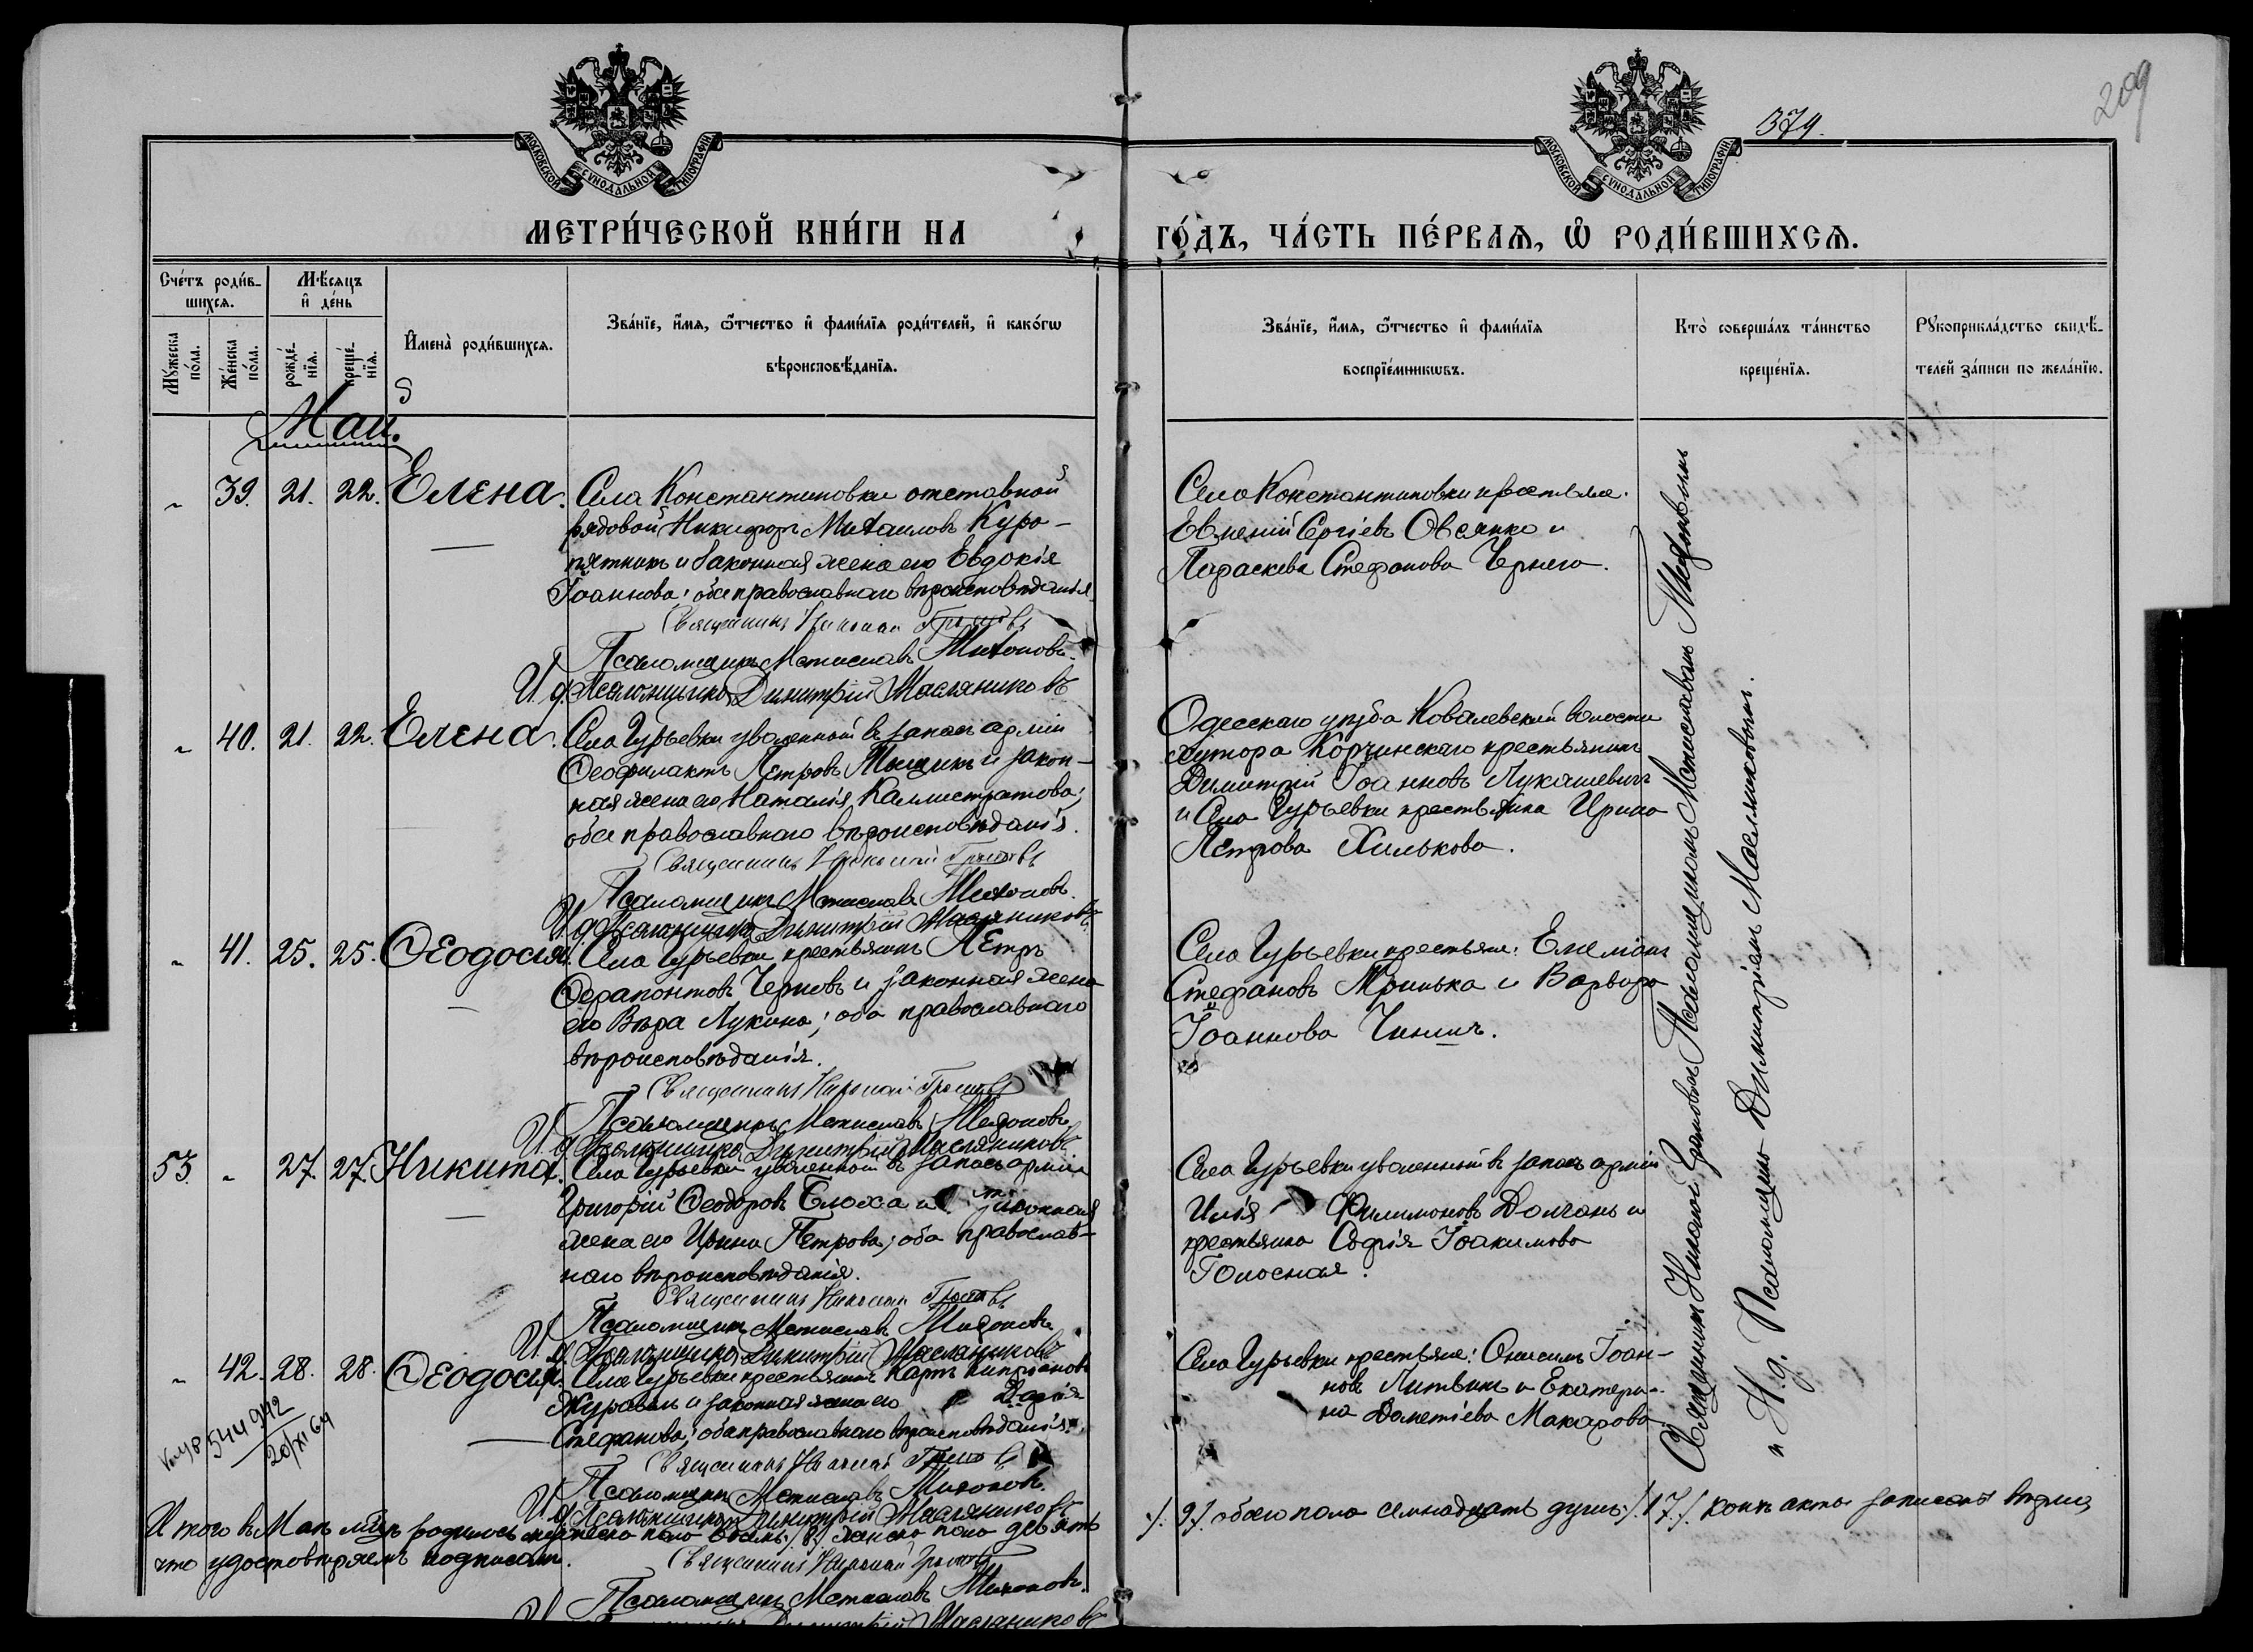 379.
209
МОСКОВСКОЙ СѴНОДАЛЬНОЙ ТИПОГРАФІИ
МОСКОВСКОЙ СѴНОДАЛЬНОЙ ТИПОГРАФІИ
МЕТРИ́ЧЕСКОЙ КНИ́ГИ НА
ГО́ДЪ, ЧА́СТЬ ПЕ́РВАЯ, Ѡ РОДИ́ВШИХСЯ.
Сче́тъ роди́в-
шихся.
Мѣ́сяцъ
и҆ де́нь
Мꙋ́жеска
по́ла.
Же́нска
по́ла.
рожде́-
нїя.
креще́-
нїя.
И҆мена̀ роди́вшихся.
Зва́нїе, и҆́мя, ѻ҆́тчество и҆ фами́лїя роди́телей, и҆ како́гѡ
вѣроисповѣ́данїя.
Зва́нїе, и҆́мя, ѻ҆́тчество и҆ фами́лїя
воспрїе́мниковъ.
Кто̀ соверша́лъ та́инство
креще́нїя.
Рꙋкоприкла́дство свидѣ́-
телей за́писи по жела́нїю.
Май.
" 39. 21. 22. Елена.
Села Константиновки отставной
рядовой Никифоръ Михаиловъ Куро-
пятникъ и законная жена его Евдокія
Іоаннова; оба православнаго вѣроисповѣданія.
Священникъ Николай Громовъ
Псаломщикъ Мстиславъ Тихоновъ.
И. д. Псаломщика Димитрій Маслянниковъ
Села Константиновки крестьяне:
Евмений Сергіевъ Овсянко и
Параскева Стефанова Чернега.
" 40. 21. 22. Елена.
Села Гурьевки уволенный въ запасъ арміи
Ѳеофилактъ Петровъ Тищикъ и закон-
ная жена его Наталія Каллистратова;
оба православнаго вѣроисповѣданія.
Священникъ Николай Громовъ
Псаломщикъ Мстиславъ Тихоновъ.
И. д. Псаломщика Димитрій Маслянниковъ
Одесскаго уѣзда Ковалевской волости
хутора Корчинскаго крестьянинъ
Димитрій Іоанновъ Лукашевичъ
и Села Гурьевки крестьянка Ирина
Петрова Хилькова.
" 41. 25. 25. Ѳеодосія.
Села Гурьевки крестьянинъ Петръ
Ѳерапонтовъ Черновъ и законная жена
его Вѣра Лукина; оба православнаго
вѣроисповѣданія.
Священникъ Николай Громовъ
Псаломщикъ Мстиславъ Тихоновъ.
И. д. Псаломщика Димитрій Маслянниковъ
Села Гурьевки крестьяне: Емеліанъ
Стефановъ Гринька и Варвара
Іоаннова Чиничъ.
53. " 27. 27. Никита.
Села Гурьевки уволенный въ запасъ арміи
Григорій Ѳеодоровъ Блоха и законная
жена его Ирина Петрова; оба православ-
наго вѣроисповѣданія.
Священникъ Николай Громовъ
Псаломщикъ Мстиславъ Тихоновъ
И. д. Псаломщика Димитрій Маслянниковъ
Села Гурьевки уволенный въ запасъ арміи
Илія Филимоновъ Долгань и
крестьянка Софія Іоакимова
Голосная.
" 42. 28. 28. Ѳеодосія.
Села Гурьевки крестьянинъ Карпъ Кипріановъ
Журавель и законная жена его Дарія
Стефанова; оба православнаго вѣроисповѣданія.
Священникъ Николай Громовъ
Псаломщикъ Мстиславъ Тихоновъ.
И. д. Псаломщика Димитрій Маслянниковъ
Села Гурьевки крестьяне: Онисимъ Іоан-
новъ Литвинъ и Екатери-
на Дометіева Макарова
544942
20/XI 64
Священникъ Николай Громовъ Псаломщикомъ Мстиславомъ Тихоновымъ
и И. д. Псаломщика Димитріемъ Маслянниковымъ.
Итого въ Маѣ мѣсяцѣ родилось мужеска пола восемь /8/ женска пола девять
/9/ обоего пола семнадцать душъ /17/ коихъ акты записаны вѣрно,
что удостовѣряемъ подписомъ.
Священникъ Николай Громовъ
Псаломщикъ Мстиславъ Тихоновъ.
Димитрій Маслянниковъ